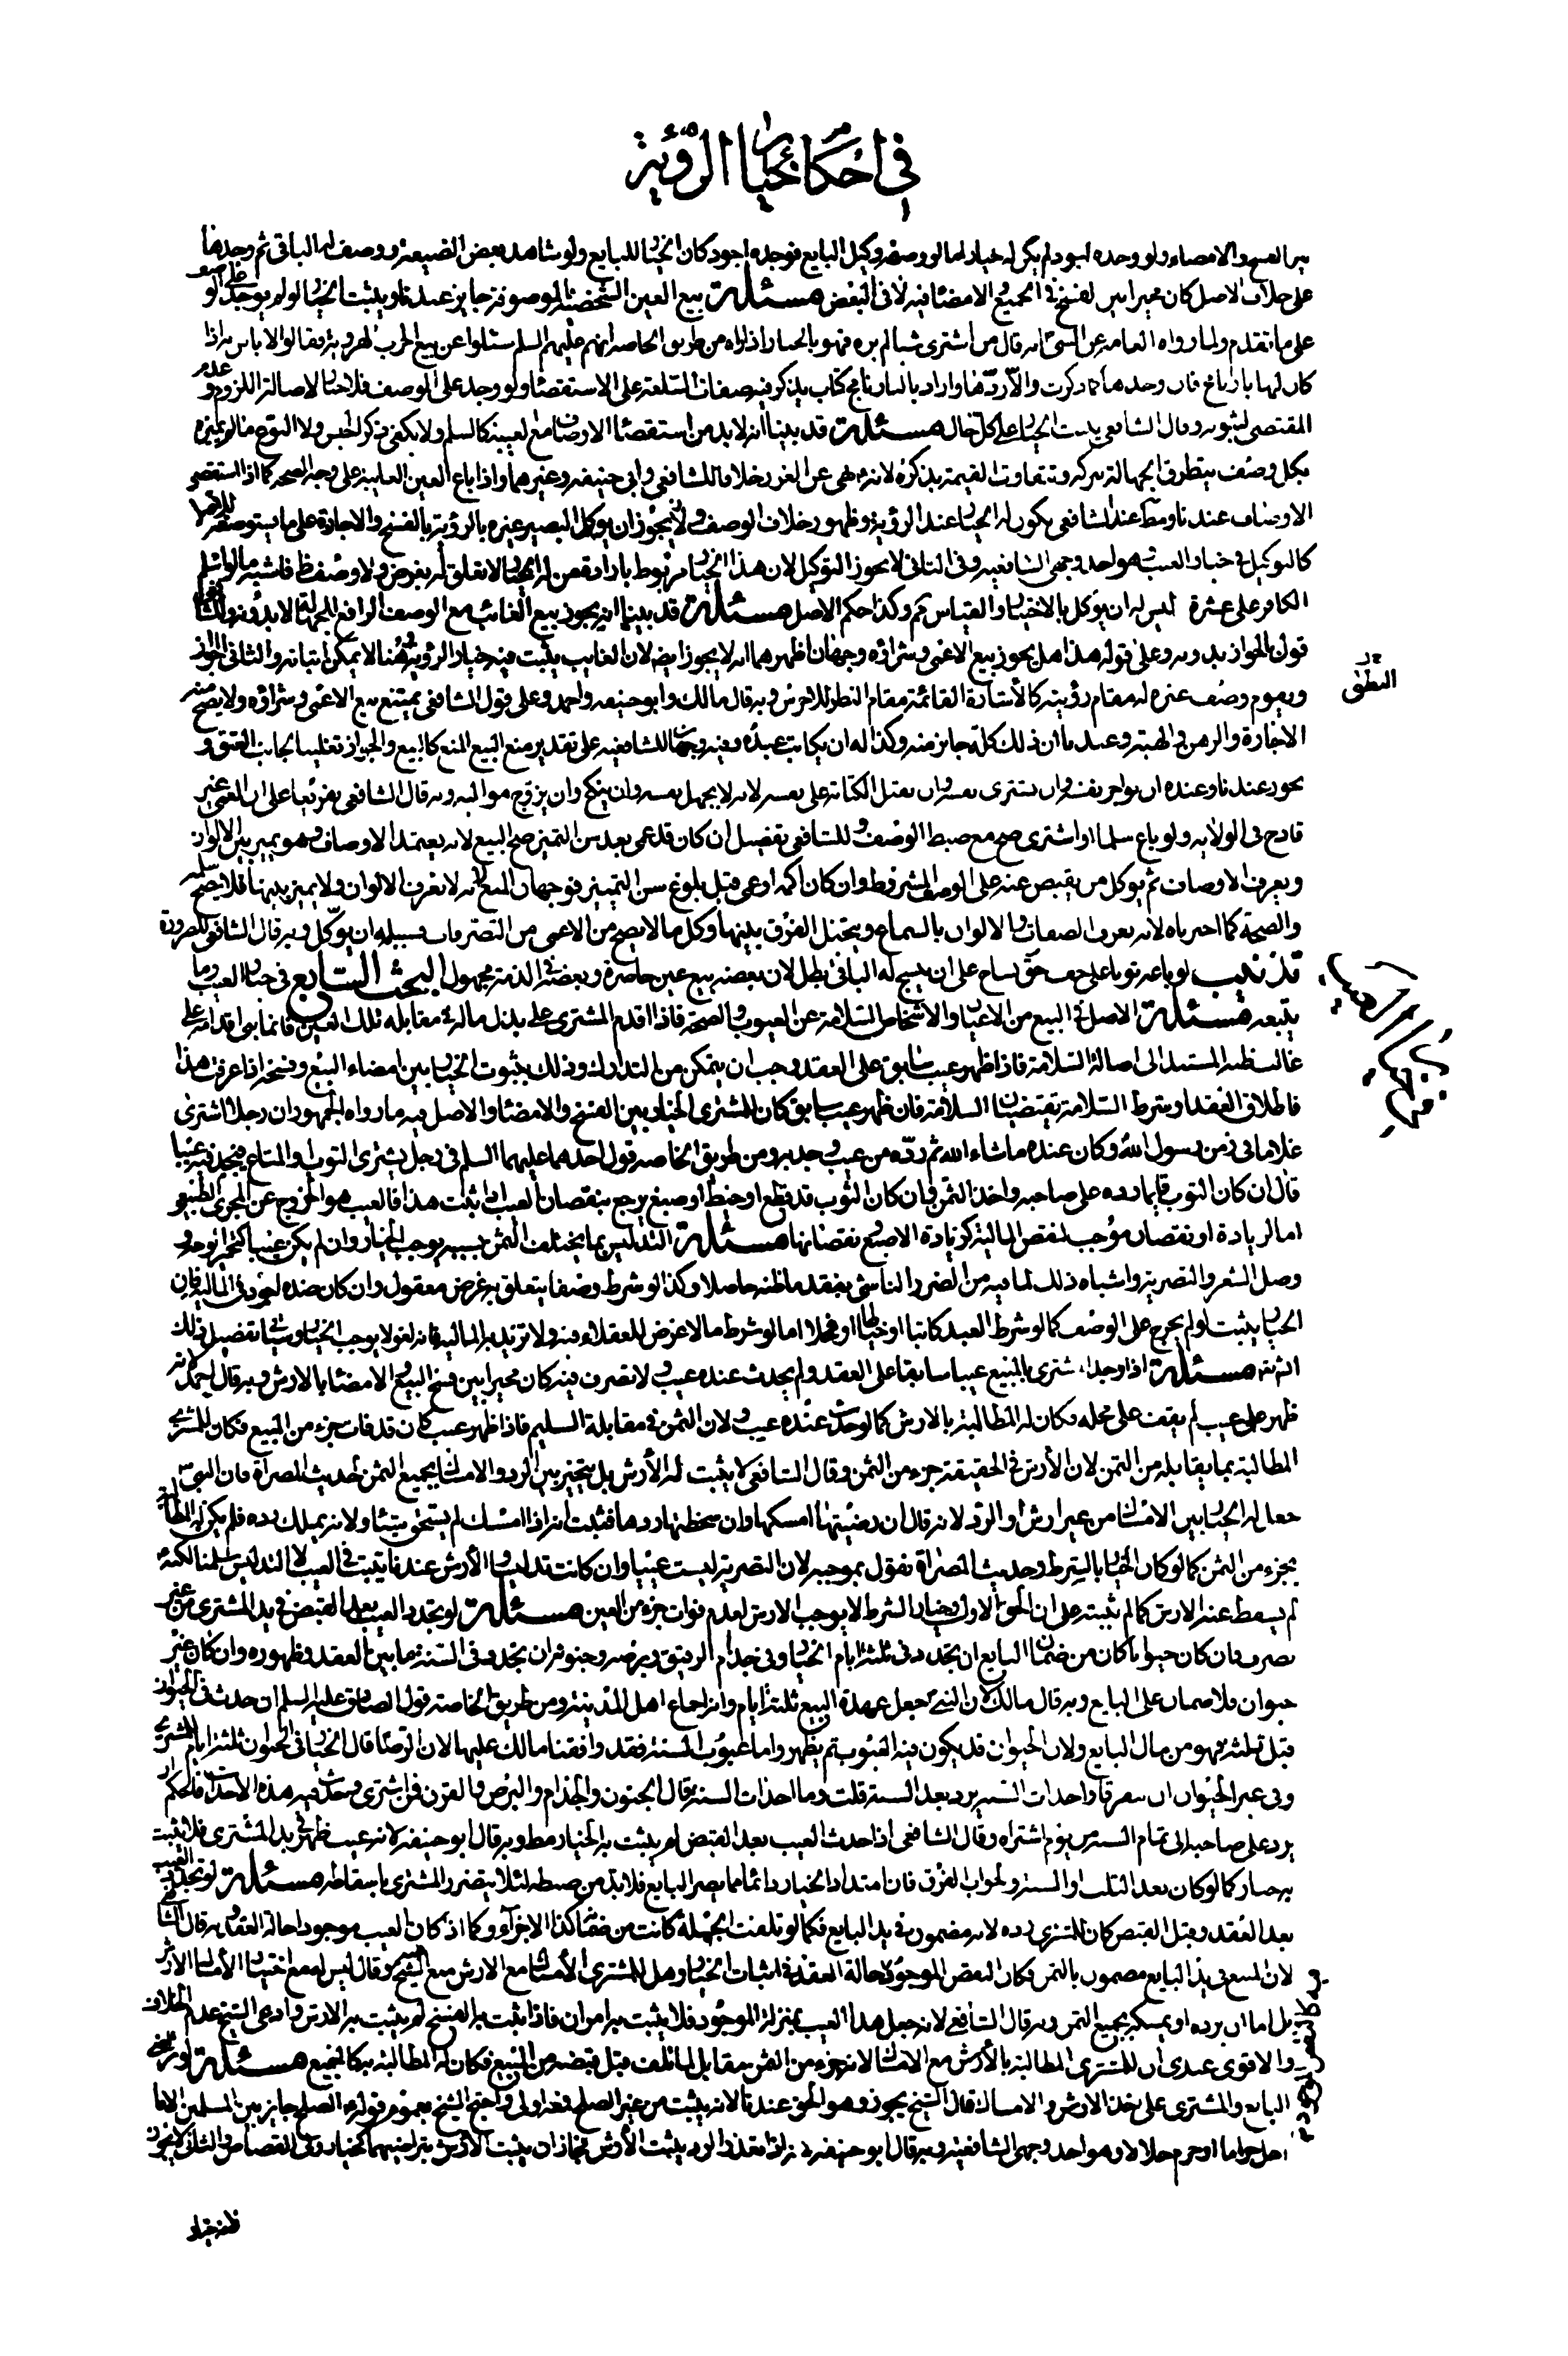 في احكام خيار الرؤية
بين الفسخ والامضاء ولو وجده اجود لم يكن له خيار اما لو وصفه وكيل البايع فوجده اجود كان الخيار للبايع ولو شاهد بعض الضيعة ووصف له الباقي ثم وجدها
على خلاف الاصل كان مخيرا بين الفسخ في الجميع والامضاء فيه لا في البعض مسئلة بيع العين الشخصية الموصوفة جايز عندنا ويثبت الخيار لو لم يوجد على الوصف
على ما تقدم ولما رواه العامة عن النبي انه قال من اشترى شيئا لم يره فهو بالخيار اذا راه من طريق الخاصة انهم عليهم السلم سئلوا عن بيع الجرب الهروية فقالوا لا باس به اذا
كان لها بارنامج فان وجدها كما ذكرت والا ردها واراد بالبارنامج كتاب يذكر فيه صفات السلعة على الاستقصاء ولو وجد على الوصف فلا خيار لاصالة اللزوم وعدم
المقتضى لثبوته وقال الشافعي يثبت الخيار على كل حال مسئلة قد بينا انه لا بد من استقصاء الاوصاف مع الغيبة كالسلم ولا يكفي ذكر الجنس ولا النوع ما لم يميزه
بكل وصف يتطرق الجهالة بتركه وتتفاوت القيمة بذكره لانه نهى عن الغرر خلافا للشافعي وابي حنيفة وغيرهما واذا باع العين الغايبة على وجه الصحة كما اذا استقصى
الاوصاف عندنا ومطلقا عند الشافعي يكون له الخيار عند الرؤية وظهور خلاف الوصف ولا يجوز ان يوكل البصير غيره بالرؤية بالفسخ والاجازة على ما يستوصفه
كالتوكيل في خيار العيب هو احد وجهي الشافعية وفي الثاني لا يجوز التوكيل لان هذا الخيار مربوط بارادة من له الخيار لا تعلق له بغرض ولا وصف ظاهر فاشبه ما لو اسلم
الكافر على عشرة ليس له ان يوكل بالاختيار والقياس وكذا حكم الاصل مسئلة قد بينا انه يجوز بيع الغائب مع الوصف الرافع للجهالة لا بدونه وللشافعي
قول بالجواز بدونه وعلى قوله هذا هل يجوز بيع الاعمى وشراؤه وجهان اظهرهما انه لا يجوز ايضا لان الغايب يثبت فيه خيار الرؤية وهنا لا يمكن اثباته والثاني الجواز
ويقوم وصف غيره له مقام رؤيته كالاشارة القائمة مقام النطق للاخرس وبه قال مالك وابو حنيفة واحمد وعلى قول الشافعي يمتنع بيع الاعمى وشراؤه ولا يصح منه
الاجارة والرهن والهبة وعندنا ان ذلك كله جايز منه وكذا له ان يكاتب عبده وفيه وجهان للشافعية على تقدير منع البيع المنع كالبيع والجواز تغليبا لجانب العتق و
يجوز عندنا وعنده ان يواجر نفسه وان يشتري نفسه وان يقبل الكتابة على نفسه لانه لا يجهل نفسه وان ينكح وان يزوج موليه وبه قال الشافعي تفريعا على ان العمى غير
قادح في الولاية ولو باع سلما او اشترى صح مع ضبط الوصف وللشافعي تفصيل ان كان قد عمي بعد سن التميز صح البيع لانه يعتمد الاوصاف وهو يميز بين الالوان
ويعرف الاوصاف ثم يوكل من يقبض عنه على الوصف المشروط وان كان اكمه او عمي قبل بلوغ سن التمييز فوجهان المنع لانه لا يعرف الالوان ولا يميز بينها فلا يصح سلمه
والصحة كما اخترناه لانه يعرف الصفات والالوان بالسماع ويتخيل الفرق بينها وكل ما لا يصح من الاعمى من التصرفات فسبيله ان يوكل وبه قال الشافعي للضرورة
تذنيب لو باعه ثوبا على حف حق نساج على ان ينسج له الباقي بطل لان بعضه بيع عين حاضرة وبعضه في الذمة مجهول البحث السابع في خيار العيب وما
يتبعه مسئلة الاصل في المبيع من الاعيان والاشخاص السلامة عن العيوب والصحة فاذا اقدم المشتري على بذل ماله في مقابلة تلك العين فانما بنى اقدامه على
غالب ظنه المستند الى اصالة السلامة فاذا ظهر عيب سابق على العقد وجب ان يتمكن من التدارك وذلك بثبوت الخيار بين امضاء البيع وفسخه اذا عرفت هذا
فاطلاق العقد او شرط السلامة يقتضيان السلامة فان ظهر عيب سابق كان للمشتري الخيار بين الفسخ والامضاء والاصل فيه ما رواه الجمهور ان رجلا اشترى
غلاما في زمن رسول الله وكان عنده ما شاء الله ثم رده من عيب وجد به ومن طريق الخاصة قول احدهما عليهما السلم في رجل يشتري الثوب او المتاع فيجد فيه عيبا
قال ان كان الثوب قايما رده على صاحبه واخذ الثمن وان كان الثوب قد قطع او خيط او صبغ يرجع بنقصان العيب اذا ثبت هذا فالعيب هو الخروج عن المجرى الطبيعي
اما لزيادة او نقصان موجب لنقص المالية كزيادة الاصبع ونقصانها مسئلة التدليس بما يختلف الثمن بسببه يوجب الخيار وان لم يكن عيبا كتحمير الوجه و
وصل الشعر والتصرية واشباه ذلك لما فيه من الضرر الناشئ بفقد ما ظنه حاصلا وكذا لو شرط وصفا يتعلق به غرض معقول وان كان ضده اجود في المالية فان
الخيار يثبت لو لم يخرج على الوصف كما لو شرط العبد كاتبا او خياطا او فحلا اما لو شرط ما لا غرض للعقلاء فيه ولا تزيد به المالية فانه لغو لا يوجب الخيار وسياتي تفصيل ذلك
انشاء الله مسئلة اذا وجد المشتري بالمبيع عيبا سابقا على العقد ولم يحدث عنده عيب ولا تصرف فيه كان مخيرا بين فسخ البيع والامضاء بالارش وبه قال احمد لانه
ظهر على عيب لم يقف على محله فكان له المطالبة بالارش كما لو حدث عنده عيب ولان الثمن في مقابلة السليم فاذا ظهر عيب كان قد فات جزء من المبيع فكان للمشتري
المطالبة بما يقابله من الثمن لان الارش في الحقيقة جزء من الثمن وقال الشافعي لا يثبت له الارش بل يتخير بين الرد والامساك بجميع الثمن لحديث المصراة فان النبي
جعل له الخيار بين الامساك من غير ارش او الرد لانه قال ان رضيتها امسكها وان سخطها ردها فثبت انه اذا امسك لم يستحق شيئا ولانه يملك رده فلم يكن له المطالبة
بجزء من الثمن كما لو كان الخيار بالشرط وحديث المصراة نقول بموجبه لان التصرية ليست عيبا وان كانت تدليسا والارش عندنا يثبت في العيب لا التدليس سلمنا لكنه
لم يسقط عنه الارش كما لم يثبته على ان الحق الاول وخيار الشرط لا يوجب الارش لعدم فوات جزء من العين مسئلة لو تجدد العيب بعد القبض في يد المشتري من غير
تصرف فان كان حيوانا كان من ضمان البايع ان تجدد في ثلثة ايام الخيار وفي جذام الرقيق وبرصه وجنونه ان تجدد في السنة ما بين العقد وظهوره وان كان غير
حيوان فلا ضمان على البايع وبه قال مالك لان النبي جعل عهدة البيع ثلثة ايام وانه اجماع اهل المدينة ومن طريق الخاصة قول الصادق عليه السلم ان حدث في الحيوان
قبل ثلثة فهو من مال البايع ولان الحيوان قد يكون فيه العيوب ثم يظهر واما عيوب السنة فقد وافقنا مالك عليها لان الرضا قال الخيار في الحيوان ثلثة ايام للمشتري
وفي غير الحيوان ان يتفرقا واحداث السنة يرد بعد السنة قلت وما احداث السنة قال الجنون والجذام والبرص والقرن فمن اشترى وحدث فيه هذه الاحداث فالحكم ان
يرد على صاحبه الى تمام السنة من يوم اشتراه وقال الشافعي اذا حدث العيب بعد القبض لم يثبت به الخيار مطلقا وبه قال ابو حنيفة لانه عيب ظهر في يد المشتري فلا يثبت
به خيار كما لو كان بعد الثلث او السنة والجواب الفرق فان امتداد الخيار دائما مما يضر البايع فلا بد من ضبطه لئلا يتضرر المشتري باسقاطه مسئلة لو تجدد العيب
بعد العقد وقبل القبض كان للمشتري رده لانه مضمون في يد البايع فكما لو تلفت الجملة كانت من ضمانه فكذا الاجزاء وكما اذا كان العيب موجودا حالة العقد وبه قال الشافعي
لان المبيع في يد البايع مضمون بالثمن فكان النقص الموجود كحالة العقد في اثبات الخيار وهل للمشتري الامساك مع الارش منع الشيخ وقال ليس له مع اختيار الامساك الارش
بل اما ان يرده او يمسكه بجميع الثمن وبه قال الشافعي لانه جعل هذا العيب بمنزلة الموجود فلا يثبت به امران فاذا يثبت به الفسخ لم يثبت به الارش وادعى الشيخ عدم الخلاف
والاقوى عندي ان للمشتري المطالبة بالارش مع الامساك لانه جزء من الثمن مقابل لما تلف قبل قبضه من المبيع فكان له المطالبة به كالجميع مسئلة لو تراضى
البايع والمشتري على اخذ الارش والامساك قال الشيخ يجوز وهو الحق عندنا لانه يثبت من غير الصلح فمعه اولى واحتج الشيخ بعموم قوله الصلح جايز بين المسلمين الا ما
احل حراما او حرم حلالا وهو احد وجهي الشافعية وبه قال ابو حنيفة لانه اذا تعذر الرد يثبت الارش فجاز ان يثبت الارش بتراضيهما كخيار ولي القصاص والثاني لا يجوز
النطق
في خيار العيب